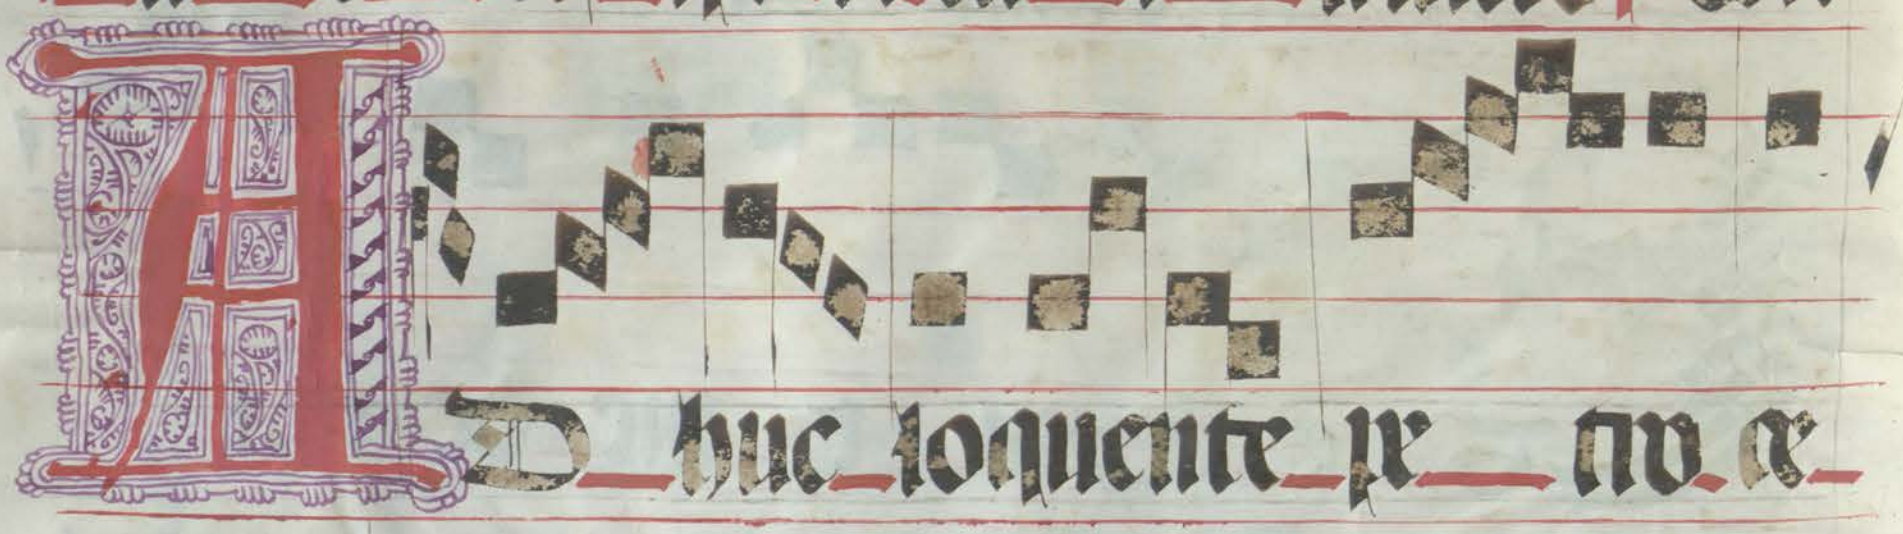 AD huc loquente pe tro ce